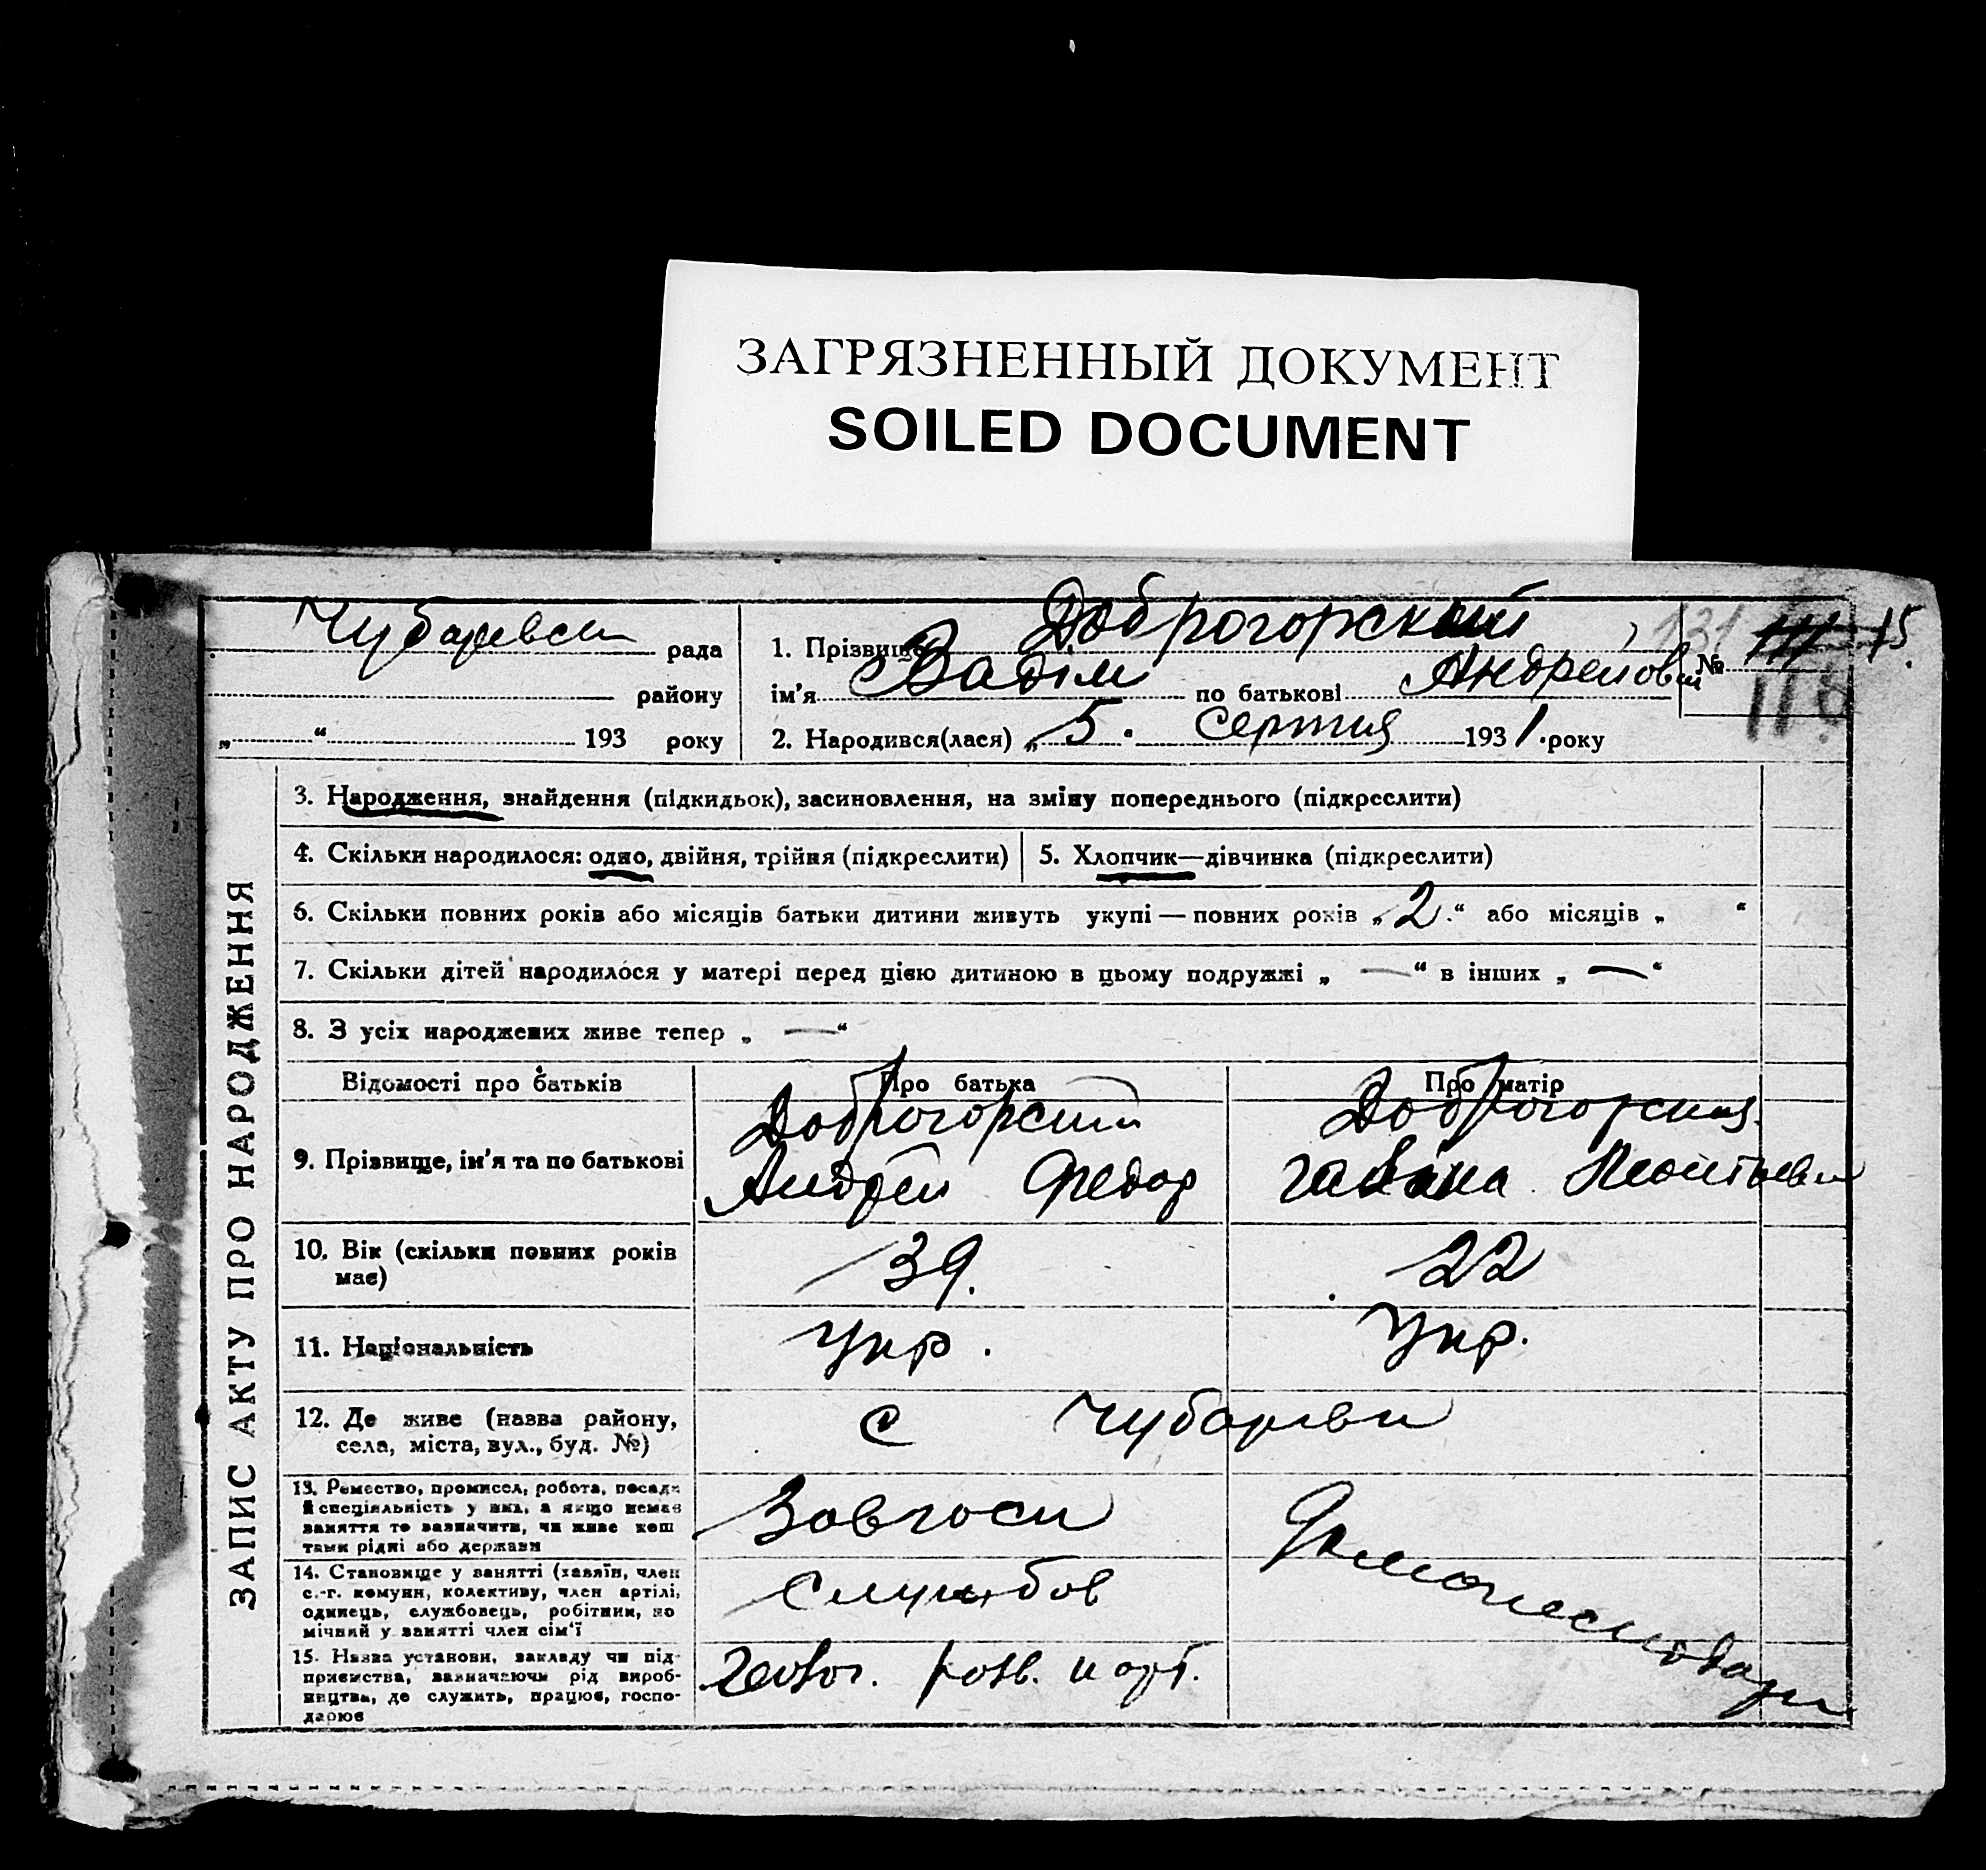 ЗАГРЯЗНЕННЫЙ ДОКУМЕНТ
SOILED DOCUMENT
рада
району
„ “ 193 року
1. Прізвище Доброгорский
ім'я Вадім по батькові Андрейов
2. Народився(лася) „ 5. “ Серпня 1931. року
131
№ 15
118
ЗАПИС АКТУ ПРО НАРОДЖЕННЯ
3. Народження, знайдення (підкидьок), засиновлення, на зміну попереднього (підкреслити)
4. Скільки народилося: одно, двійня, трійня (підкреслити)
5. Хлопчик—дівчинка (підкреслити)
6. Скільки повних років або місяців батьки дитини живуть укупі — повних років „ 2 “ або місяців „ “
7. Скільки дітей народилося у матері перед цією дитиною в цьому подружжі „ — “ в інших „ — “
8. З усіх народжених живе тепер „ — “
Відомості про батьків
Про батька
Про матір
9. Прізвище, ім'я та по батькові
Доброгорский
Андрей Федор
Доброгорская
Леонтьевн
10. Вік (скільки повних років
має)
39.
22
11. Національність
Укр.
Укр.
12. Де живе (назва району,
села, міста, вул., буд. №)
с Чубарівки
13. Ремество, промисел, робота, посада
й спеціяльність у яка, а якщо немає
заняття то зазначити, чи живе кош
тами рідні або держави
Завгосп
14. Становище у занятті (хазяїн, член
с.-г. комуни, колективу, член артілі,
одинець, службовець, робітник, по
мічний у занятті член сім'ї
Службов
15. Назва установи, закладу чи під-
приємства, зазначаючи рід вироб-
ництва, де служить, працює, госпо-
дарює
розв. парт.
Домогосподарк